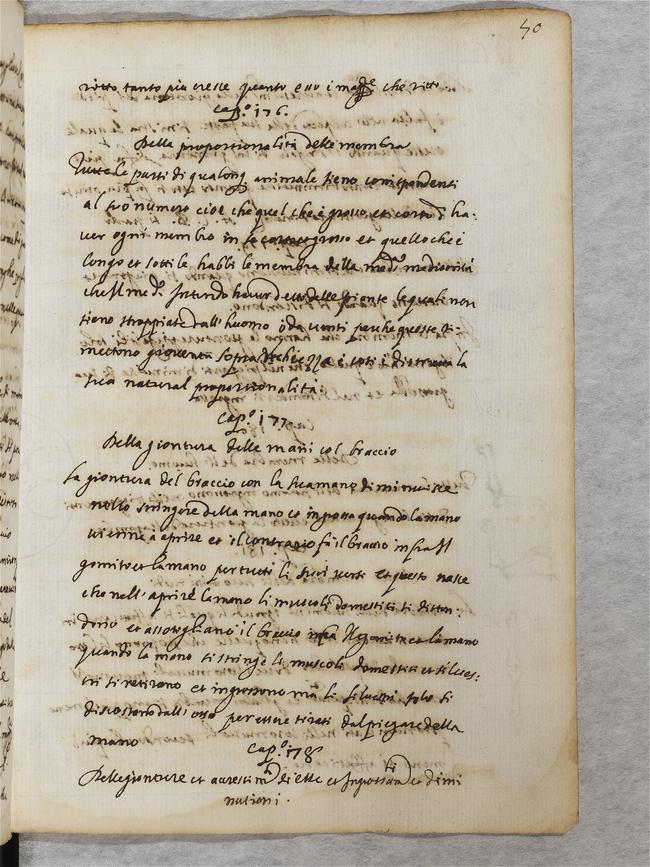 40
ritto tanto piu cresce quanto esso è magre che ritto.
cap.º 176.
Della proportionalità delle membra
Tutte le parti di qualonq animale sieno corrispondenti
al suo numero cioè che quel che è grosso et corto dè ha:
ver ogni membro in se corto et grosso et quello che è
longo et sottile habbi le membra della med.ª mediocrità
che il med.º Intendo haver detto delle piante le quali non
sieno stroppiate dall' huomo ò da venti perche queste ri-
mettono gioventù sopra vechiezza e così è distrutta la
sua natural proportionalità:
cap.º 177.
Della giontura delle mani col braccio
La giontura del braccio con la sua mano diminuisce
nello stringere della mano et ingrossa quando la mano
si viene à aprire et il contrario fa il braccio infra il
gomito et la mano per tutti li suoi versi et questo nasce
che nell' aprire la mano li muscoli domestici si disten:
dono et assotigliano il braccio infra il gomito et la mano
quando la mano si stringe li muscoli domestici et silves:
tri si retirono et ingrossono mà li silvestri solo si
discostano dall' osso per essere tirati dal piegare della
mano
cap.º 178
Delle gionture et accrescim.ti di esse et
diminutioni.